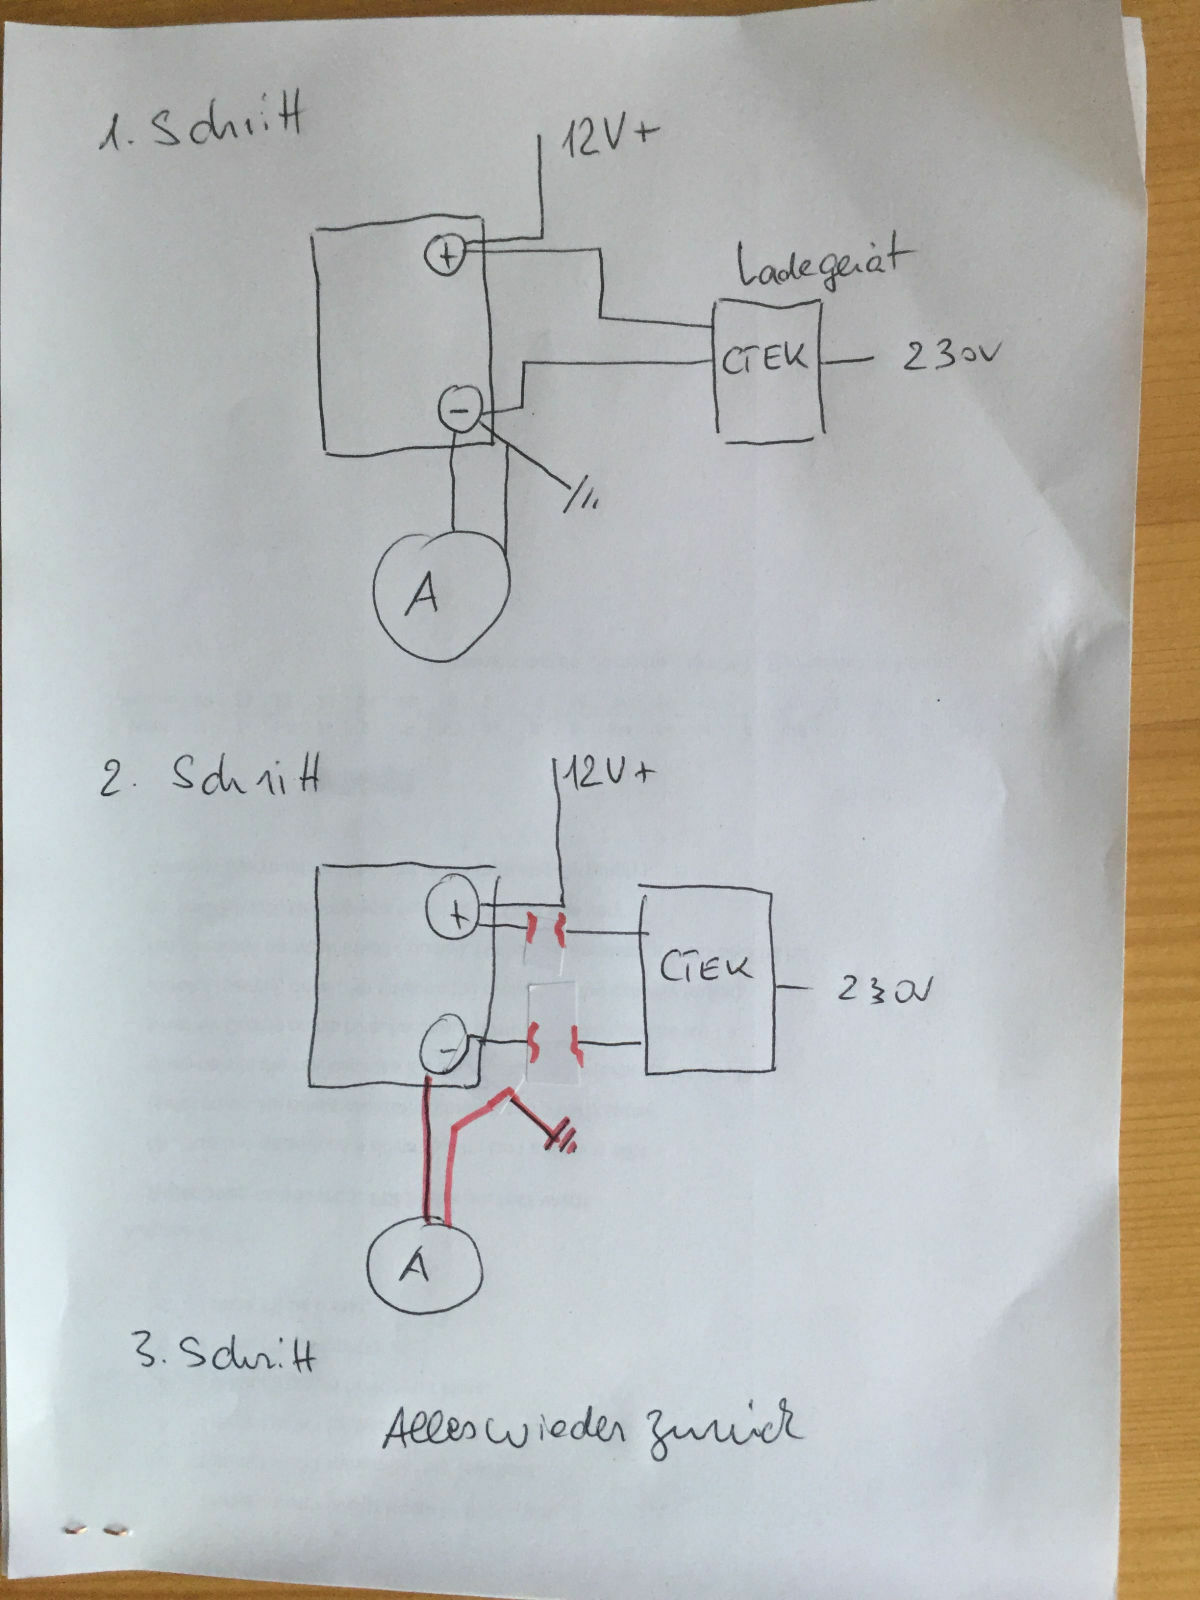 1. Schritt
12V+
+
Ladegerät
CTEK
230V
-
A
2. Schritt
12V+
+
CTEK
230V
-
A
3. Schritt
Alles wieder zurück